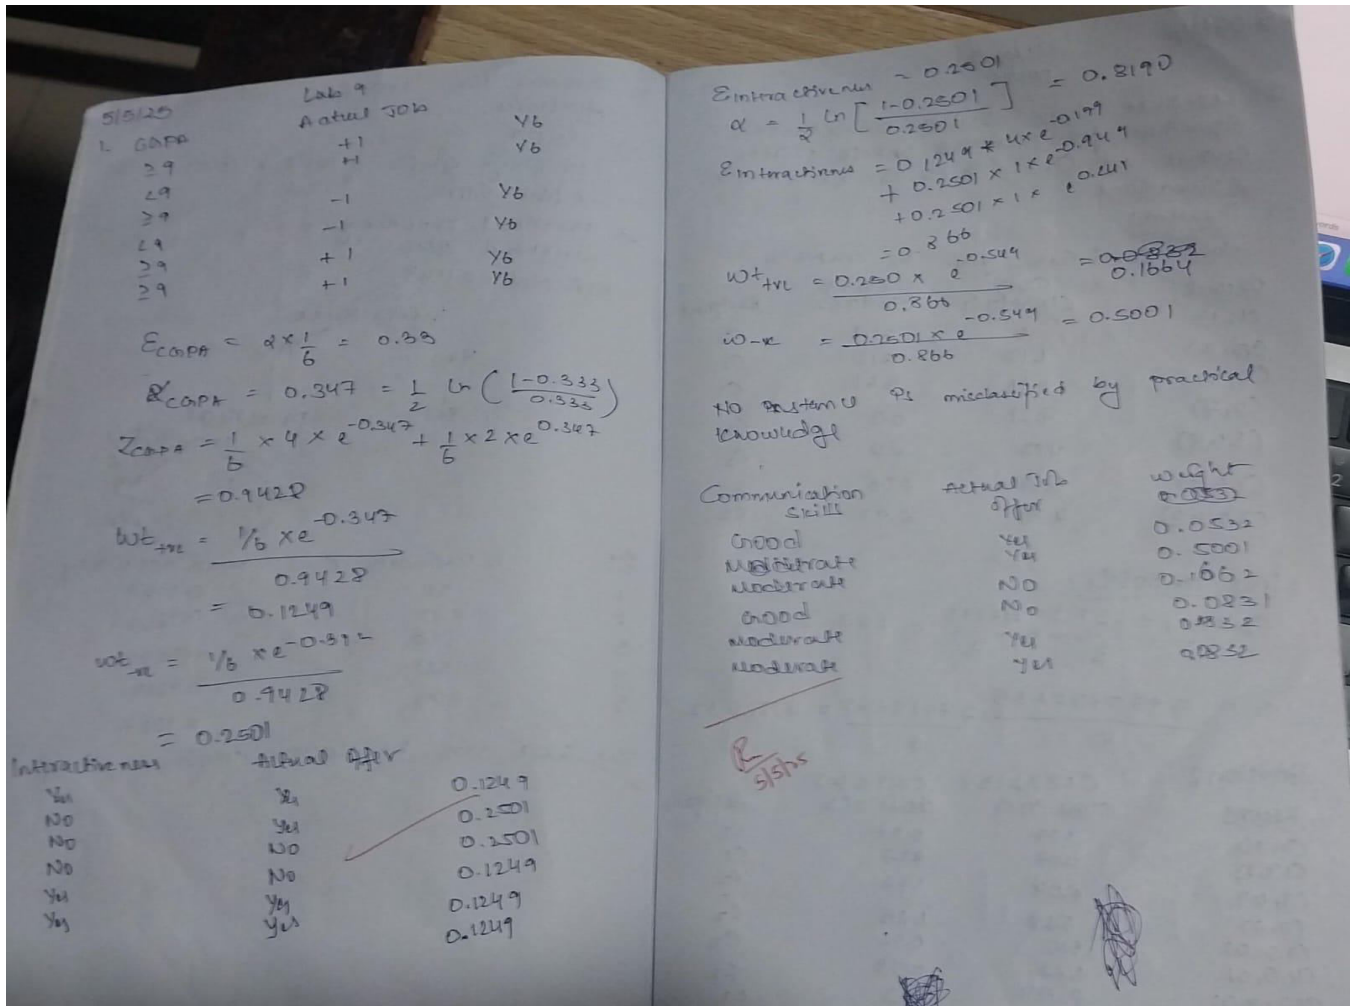 5/5/25
Lab 9
1. CGPA Actual Job
≥9 +1 1/6
<9 +1 1/6
≥9 -1 1/6
<9 -1 1/6
≥9 +1 1/6
≥9 +1 1/6
ECGPA = 2 × 1/6 = 0.33
αCGPA = 0.347 = 1/2 ln (1-0.333 / 0.333)
ZCGPA = 1/6 × 4 × e^-0.347 + 1/6 × 2 × e^0.347
= 0.9428
wt = 1/6 × e^-0.347
0.9428
= 0.1249
wt = 1/6 × e
0.9428
= 0.2501
Interactiveness Actual offer
Yes Yes 0.1249
No Yes 0.2501
No No 0.2501
No No 0.1249
Yes Yes 0.1249
Yes Yes 0.1249
E interactiveness = 0.2501
α = 1/2 ln [1-0.2501 / 0.2501] = 0.8190
= 0.1249 * 4 × e
+ 0.2501 × 1 ×
+ 0.2501 × 1 × e
= 0.866
wt +ve = 0.250 × e^-0.549 = 0.1664
0.866
w-ve = 0.2501 × e^-0.549 = 0.5001
0.866
No instance is misclassified by practical
knowledge
Communication Actual Job weight
skill offer
Good Yes 0.0532
Moderate Yes 0.5001
Moderate No 0.1662
Good No 0.0831
Moderate Yes
Moderate Yes
5/5/25